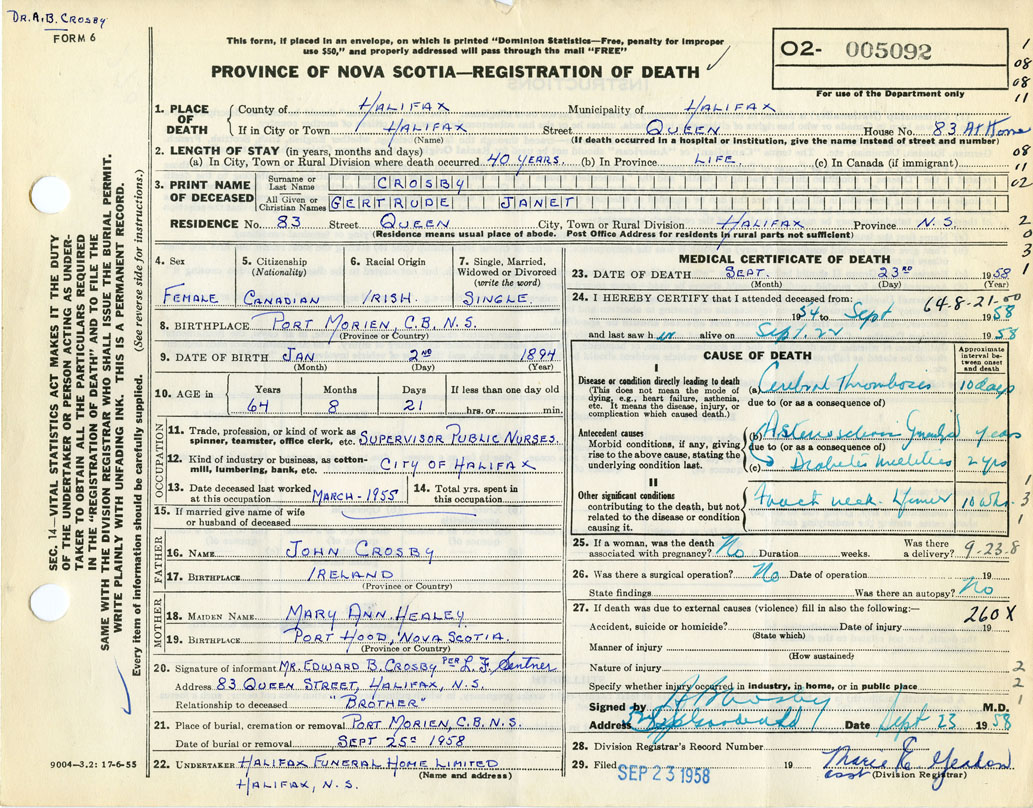 DR. A. B. CROSBY
FORM 6
This form, if placed in an envelope, on which is printed "Dominion Statistics—Free, penalty for improper
use $50," and properly addressed will pass through the mail "FREE"
PROVINCE OF NOVA SCOTIA—REGISTRATION OF DEATH
02- 005092
For use of the Department only
1
08
08
11
08
11
02
2
0
3
1
1
3
1
2
2
1
SEC. 14—VITAL STATISTICS ACT MAKES IT THE DUTY
OF THE UNDERTAKER OR PERSON ACTING AS UNDER-
TAKER TO OBTAIN ALL THE PARTICULARS REQUIRED
IN THE "REGISTRATION OF DEATH" AND TO FILE THE
SAME WITH THE DIVISION REGISTRAR WHO SHALL ISSUE THE BURIAL PERMIT.
WRITE PLAINLY WITH UNFADING INK. THIS IS A PERMANENT RECORD.
Every item of information should be carefully supplied. (See reverse side for instructions.)
1. PLACE OF DEATH { County of HALIFAX Municipality of HALIFAX
If in City or Town HALIFAX Street QUEEN House No. 83 At Home
(Name) (If death occurred in a hospital or institution, give the name instead of street and number)
2. LENGTH OF STAY (in years, months and days)
(a) In City, Town or Rural Division where death occurred 40 YEARS. (b) In Province LIFE. (c) In Canada (if immigrant)
3. PRINT NAME OF DECEASED Surname or Last Name CROSBY
All Given or Christian Names GERTRUDE JANET
RESIDENCE No. 83 Street QUEEN City, Town or Rural Division HALIFAX Province N.S.
(Residence means usual place of abode. Post Office Address for residents in rural parts not sufficient)
4. Sex FEMALE
5. Citizenship (Nationality) CANADIAN
6. Racial Origin IRISH.
7. Single, Married, Widowed or Divorced (write the word) SINGLE.
8. BIRTHPLACE PORT MORIEN, C.B. N.S.
(Province or Country)
9. DATE OF BIRTH JAN 2ND 1894
(Month) (Day) (Year)
10. AGE in Years 64 Months 8 Days 21 If less than one day old hrs. or min.
OCCUPATION
11. Trade, profession, or kind of work as
spinner, teamster, office clerk, etc. SUPERVISOR PUBLIC NURSES.
12. Kind of industry or business, as cotton-
mill, lumbering, bank, etc. CITY OF HALIFAX
13. Date deceased last worked at this occupation MARCH-1955 14. Total yrs. spent in this occupation
15. If married give name of wife
or husband of deceased
FATHER
16. NAME JOHN CROSBY
17. BIRTHPLACE IRELAND
(Province or Country)
MOTHER
18. MAIDEN NAME MARY ANN HEALEY
19. BIRTHPLACE PORT HOOD, NOVA SCOTIA.
(Province or Country)
20. Signature of informant MR. EDWARD B. CROSBY PER L. F. Sentner
Address 83 QUEEN STREET, HALIFAX, N.S.
Relationship to deceased "BROTHER"
21. Place of burial, cremation or removal PORT MORIEN, C.B. N.S.
Date of burial or removal SEPT 25TH 1958
22. UNDERTAKER HALIFAX FUNERAL HOME LIMITED
(Name and address)
HALIFAX, N.S.
9004—3.2: 17-6-55
MEDICAL CERTIFICATE OF DEATH
23. DATE OF DEATH SEPT. 23RD 1958
(Month) (Day) (Year)
24. I HEREBY CERTIFY that I attended deceased from: 64-8-21-00
1954 to Sept 1958
and last saw her alive on Sept. 22 1958
CAUSE OF DEATH
Approximate interval between onset and death
I
Disease or condition directly leading to death (a) Cerebral Thromboses 10 days
(This does not mean the mode of
dying, e.g., heart failure, asthenia,
etc. It means the disease, injury, or
complication which caused death.)
due to (or as a consequence of)
Antecedent causes
Morbid conditions, if any, giving
rise to the above cause, stating the
underlying condition last.
(b) years
due to (or as a consequence of)
(c) Diabetes mellitus 2 yrs
II
Other significant conditions
contributing to the death, but not
related to the disease or condition
causing it.
Fract neck femur 10 wks.
25. If a woman, was the death
associated with pregnancy? No Duration weeks. Was there a delivery? 9-23-8
26. Was there a surgical operation? No Date of operation 19
State findings Was there an autopsy? No
27. If death was due to external causes (violence) fill in also the following:— 260X
Accident, suicide or homicide? Date of injury 19
(State which)
Manner of injury
(How sustained)
Nature of injury
Specify whether injury occurred in industry, in home, or in public place
Signed by A B Crosby M.D.
Address Date Sept 23 1958
28. Division Registrar's Record Number
29. Filed SEP 23 1958 19 Marie E. Yeadon
asst (Division Registrar)